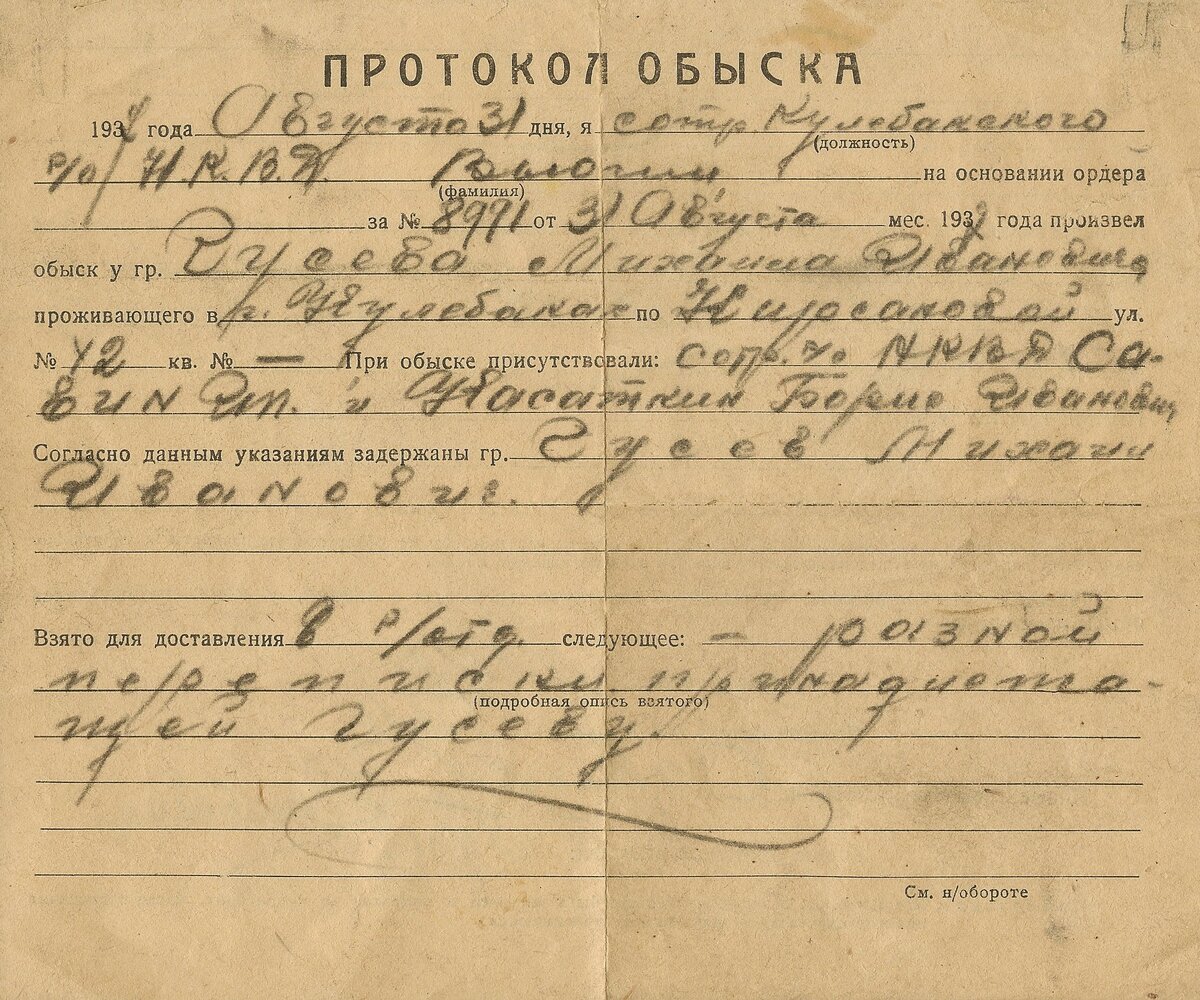 ПРОТОКОЛ ОБЫСКА
193 года Августа 31 дня, я сотр. Кулебакского
(должность)
р/о Н.К.В.Д. Вьюгин на основании ордера
(фамилия)
за № 8971 от 31 Августа мес. 193 года произвел
обыск у гр. Гусева Михаила Ивановича
проживающего в г. Кулебаках по Кирсановой ул.
№ 42 кв. № — При обыске присутствовали: сотр. НКВД Са-
вин и Касаткин Борис Иванович
Согласно данным указаниям задержаны гр. Гусев Михаил
Иванович.
Взято для доставления в р/отд. следующее: — разной
переписки принадлежа-
(подробная опись взятого)
щей Гусеву.
См. н/обороте